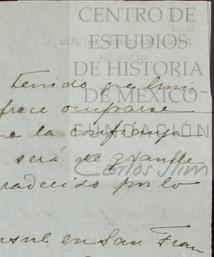 CENTRO DE
ESTUDIOS
DE HISTORIA
DE MÉXICO
FUNDACIÓN
Carlos Slim
tenido
ofrece ocuparse
la confianza
será de grande
por lo
en San Fran